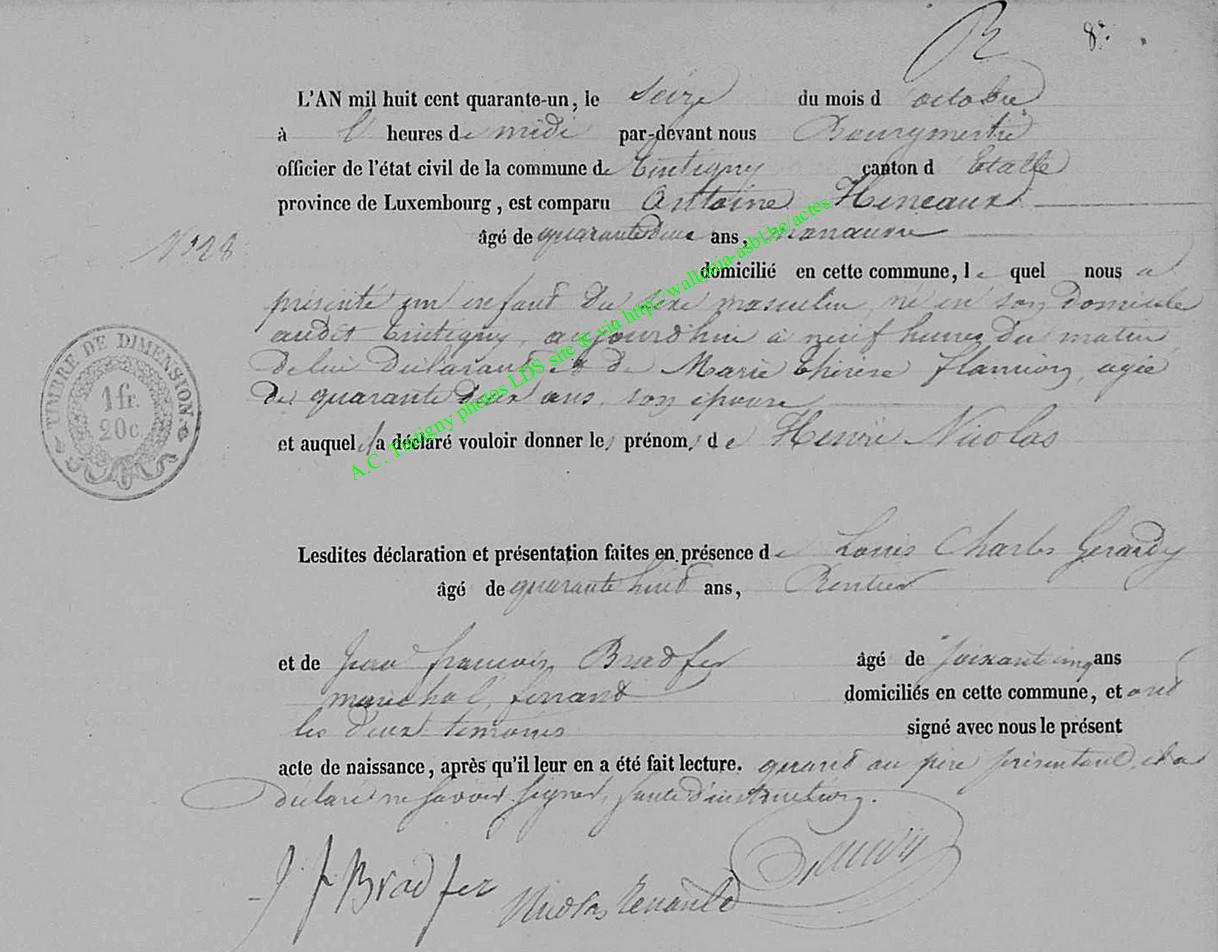 R 8e
L'AN mil huit cent quarante-un, le seize du mois d'octobre
à heures de midi par-devant nous Bourgmestre
officier de l'état civil de la commune de Tintigny canton d'Etalle
province de Luxembourg, est comparu Antoine Heneaux
âgé de quarante deux ans, manœuvre
N° 28
domicilié en cette commune, lequel nous a
présenté un enfant du sexe masculin, né en son domicile
audit Tintigny, aujourd'hui à neuf heures du matin
de lui déclarant et de Marie Thérèse Flamion, agée
de quarante deux ans, son épouse
et auquel il a déclaré vouloir donner les prénoms de Henri Nicolas
Lesdites déclaration et présentation faites en présence de Louis Charles Gerardy
âgé de quarante huit ans, Rentier
et de Jean françois Bradfer âgé de soixante cinq ans
maréchal ferrand domiciliés en cette commune, et ont
les deux témoins signé avec nous le présent
acte de naissance, après qu'il leur en a été fait lecture. quand au père présentant, il a
déclaré ne savoir signer, faute d'instruction.
J f Bradfer
Nicolas
TIMBRE DE DIMENSION
1 fr.
20c.
A.C. Tintigny photos LDS site g via http://wallonia-asbl.be/actes